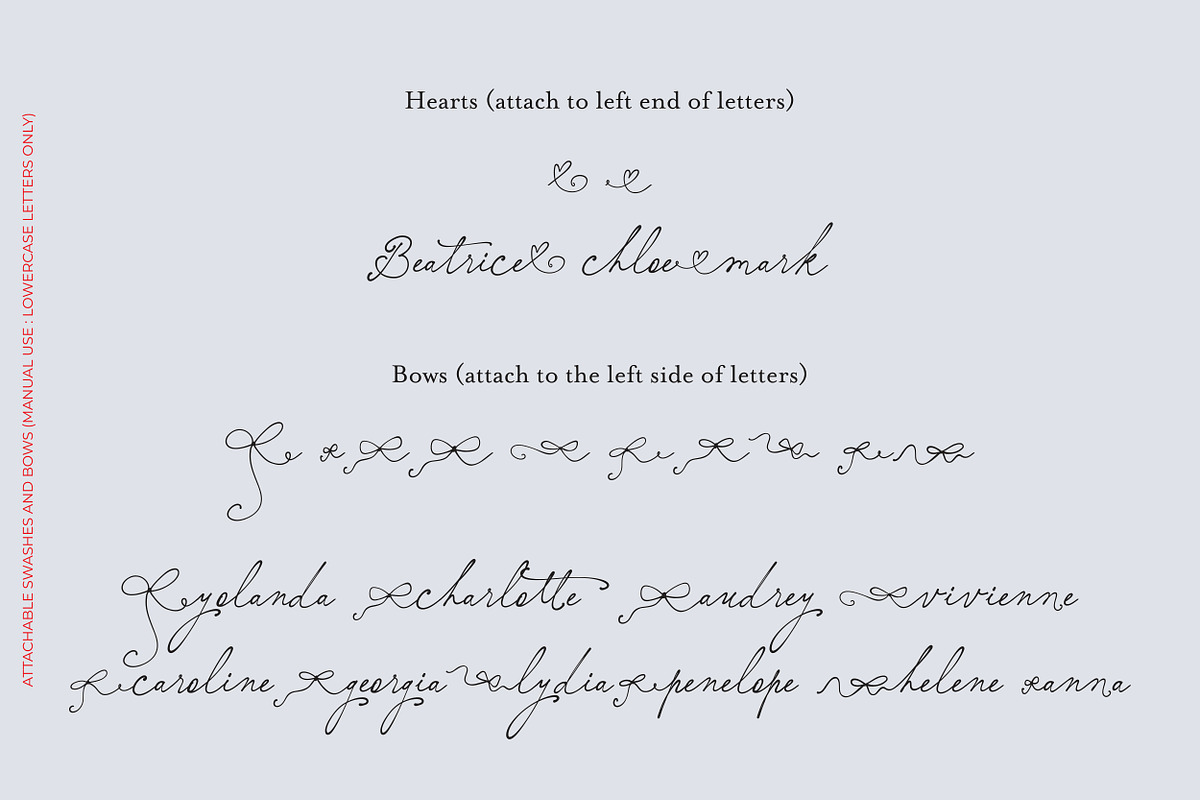 ATTACHABLE SWASHES AND BOWS (MANUAL USE : LOWERCASE LETTERS ONLY)
Hearts (attach to left end of letters)
Beatrice chloe mark
Bows (attach to the left side of letters)
yolanda charlotte audrey vivienne
caroline georgia lydia penelope helene anna